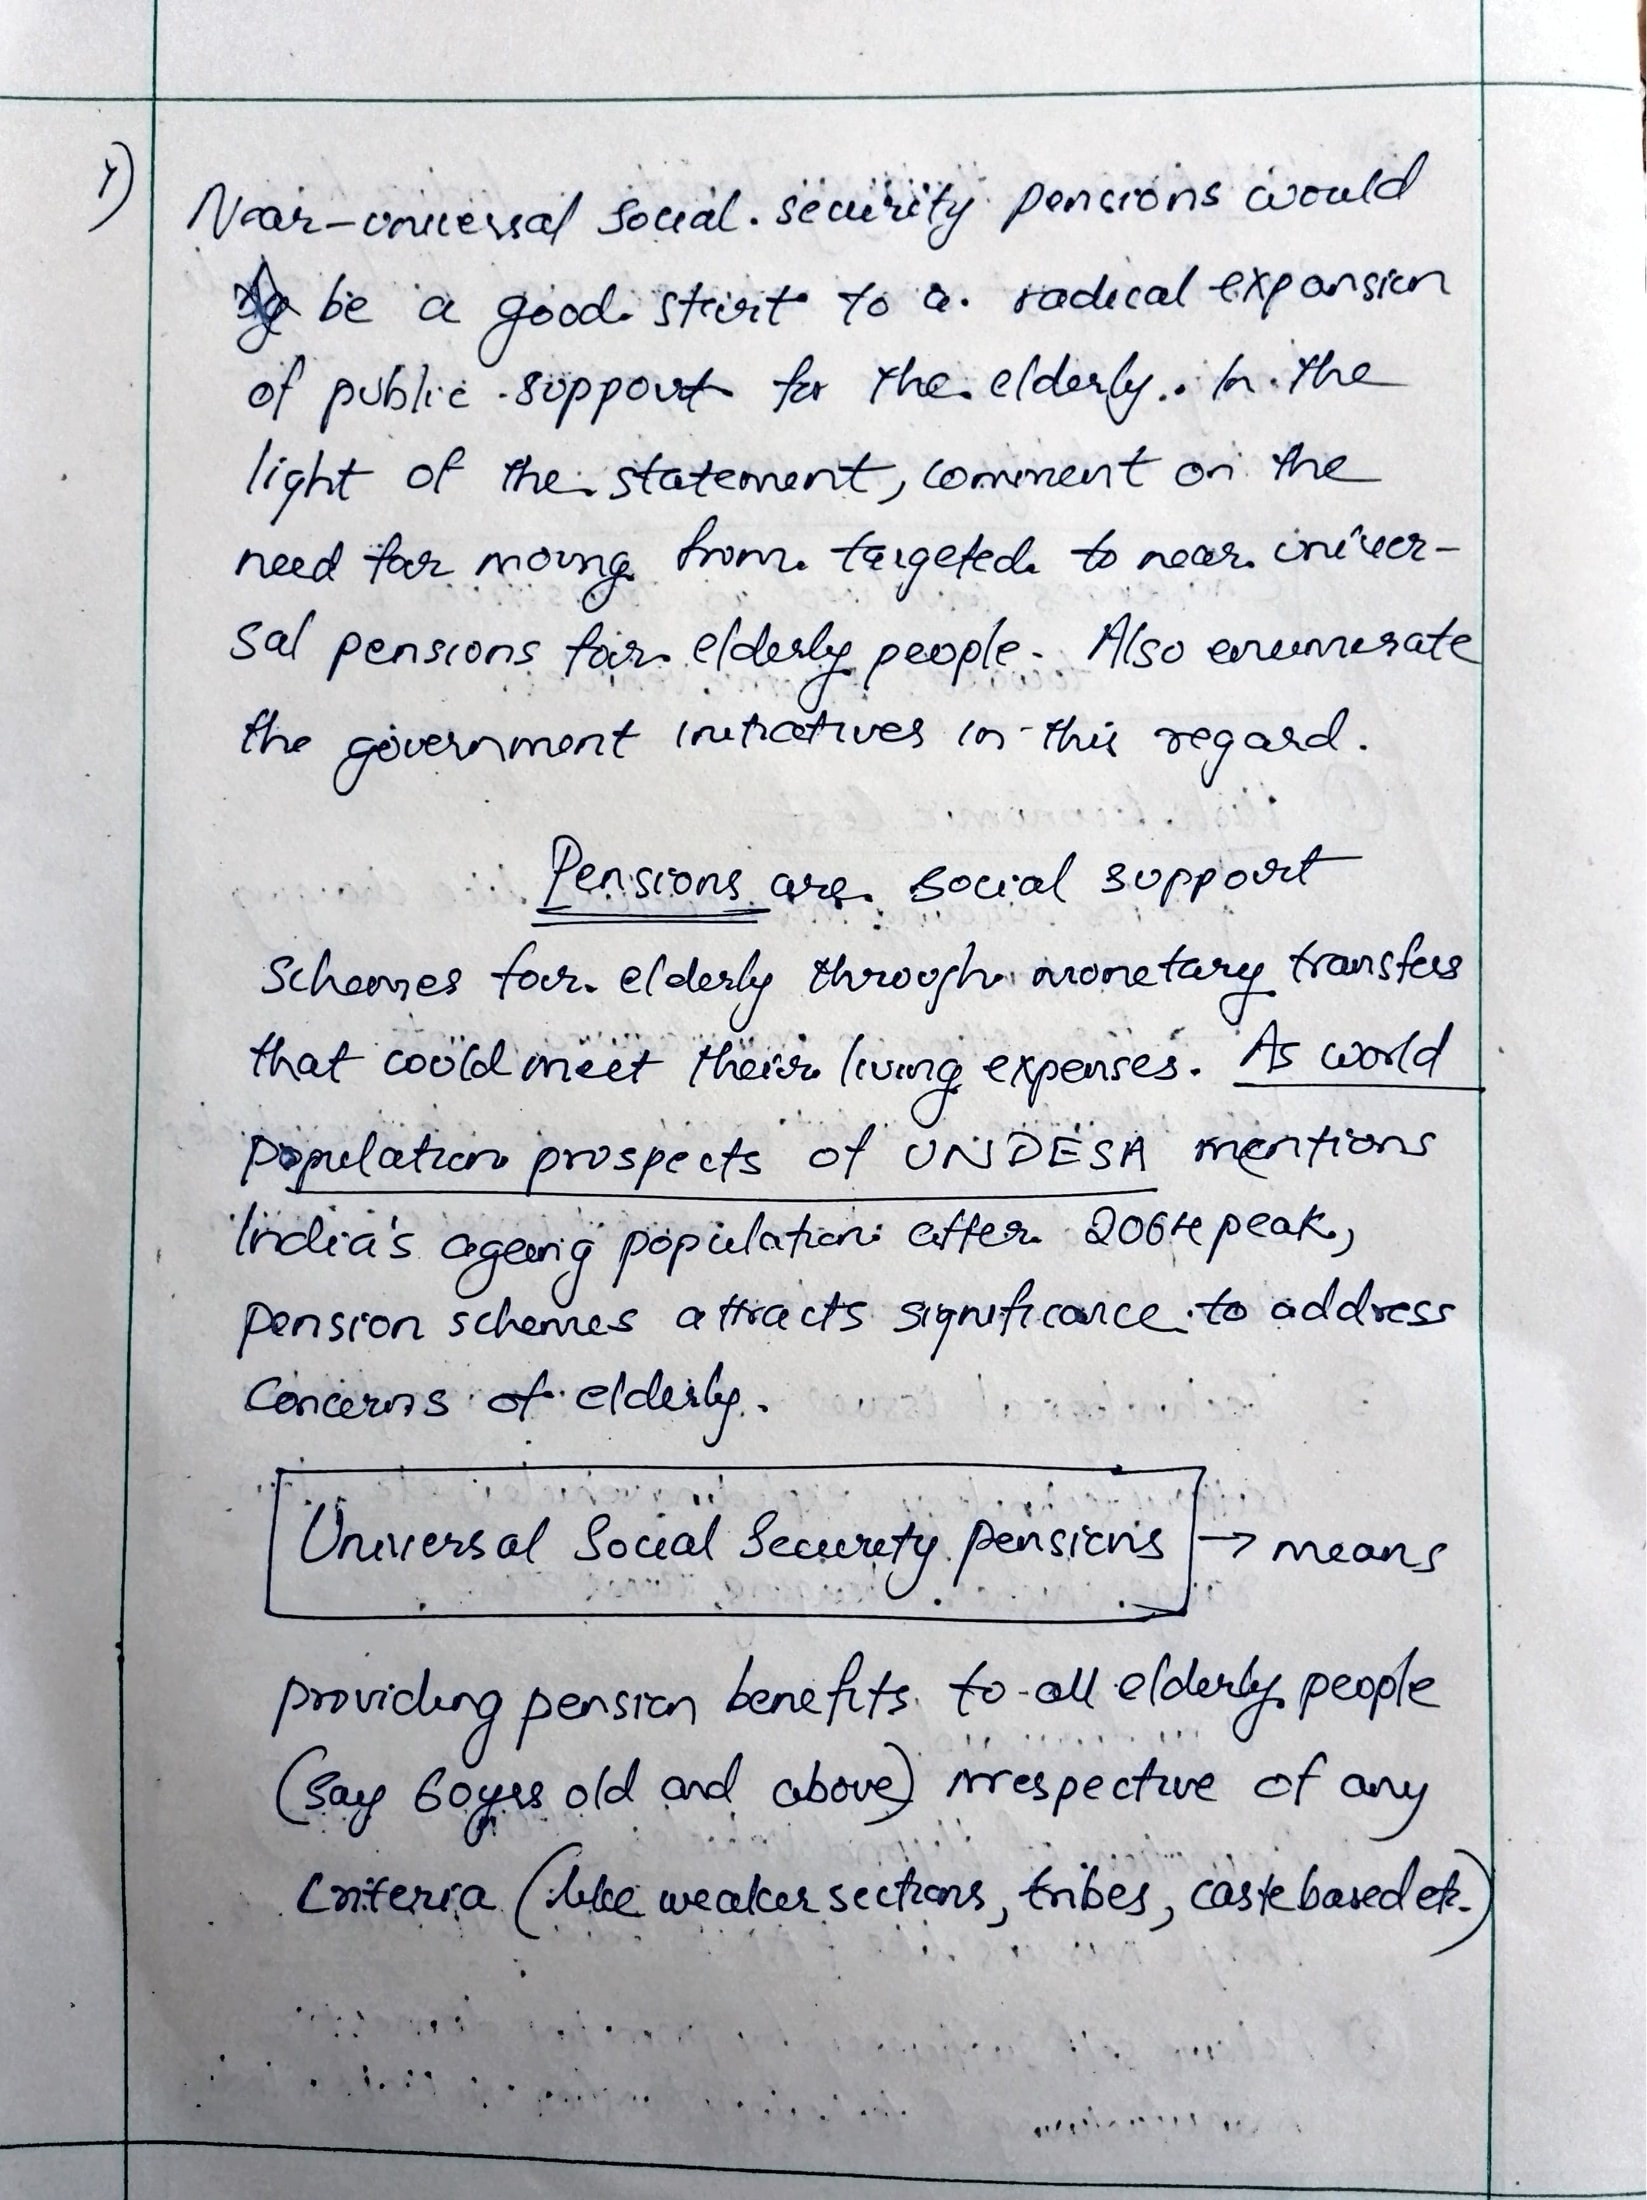 1) Near-universal social security pensions would
be a good start to a radical expansion
of public support for the elderly. In the
light of the statement, comment on the
need for moving from targeted to near univer-
sal pensions for elderly people. Also enumerate
the government initiatives in this regard.
Pensions are social support
schemes for elderly through monetary transfers
that could meet their living expenses. As world
population prospects of UNDESA mentions
India's ageing population after 2064 peak,
pension schemes attracts significance to address
concerns of elderly.
Universal Social Security pensions → means
providing pension benefits to all elderly people
(say 60yrs old and above) irrespective of any
criteria (like weaker sections, tribes, caste based etc.)